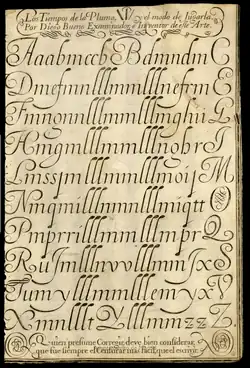 Los Tiempos de la Pluma, XIV, y el modo de Jugarla.
Por Diego Bueno Examinador, e Inventor de este Arte.
Aaabmccb Bdmndm C
Dmefmnlllmmlllnefrm E
Fmnonnlllmmlllmghii G
Hngmlllmmlllnobr I
Linssjm lllmmlllmoij M
Nmqmlllnmmlllmiqtt
Pmprrilllmmlllmpr Q
Ru lllnvolllmm x S
Tumyllimmlllemyx V
Xmnlllt Ylllmmzz Z
Quien presume Corregir, deve bien considerar,
que fue siempre el Censurar mas facil, que el escrivir.